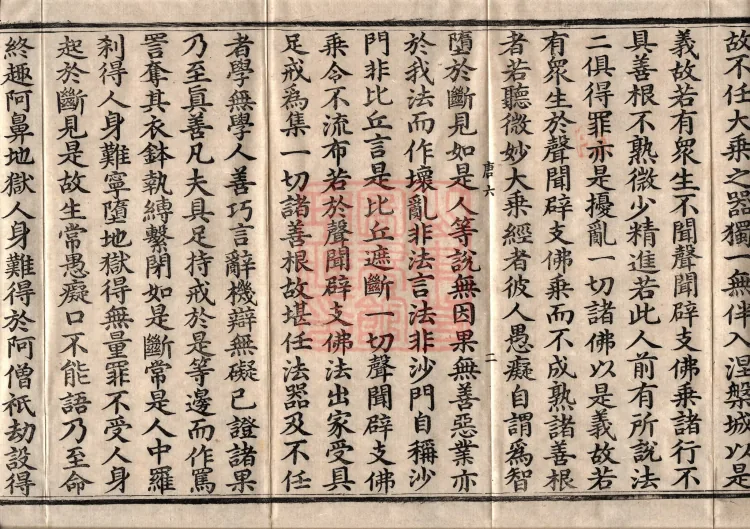 故不任大乗之器獨一無伴入涅槃城以是
義故若有衆生不聞聲聞辟支佛乗諸行不
具善根不熟微少精進若此人前有所說法
二俱得罪亦是擾亂一切諸佛以是義故若
有衆生於聲聞辟支佛乗而不成熟諸善根
者若聽微妙大乗經者彼人愚癡自謂爲智
唐六 二
墮於斷見如是人等說無因果無善惡業亦
於我法而作壞亂非法言法非沙門自稱沙
門非比丘言是比丘遮斷一切聲聞辟支佛
乗令不流布若於聲聞辟支佛法出家受具
足戒爲集一切諸善根故堪任法器及不任
者學無學人善巧言辭機辯無礙已證諸果
乃至眞善凡夫具足持戒於是等邊而作罵
詈奪其衣鉢執縛繫閉如是斷常是人中羅
刹得人身難寧墮地獄得無量罪不受人身
起於斷見是故生常愚癡口不能語乃至命
終趣阿鼻地獄人身難得於阿僧祇劫設得